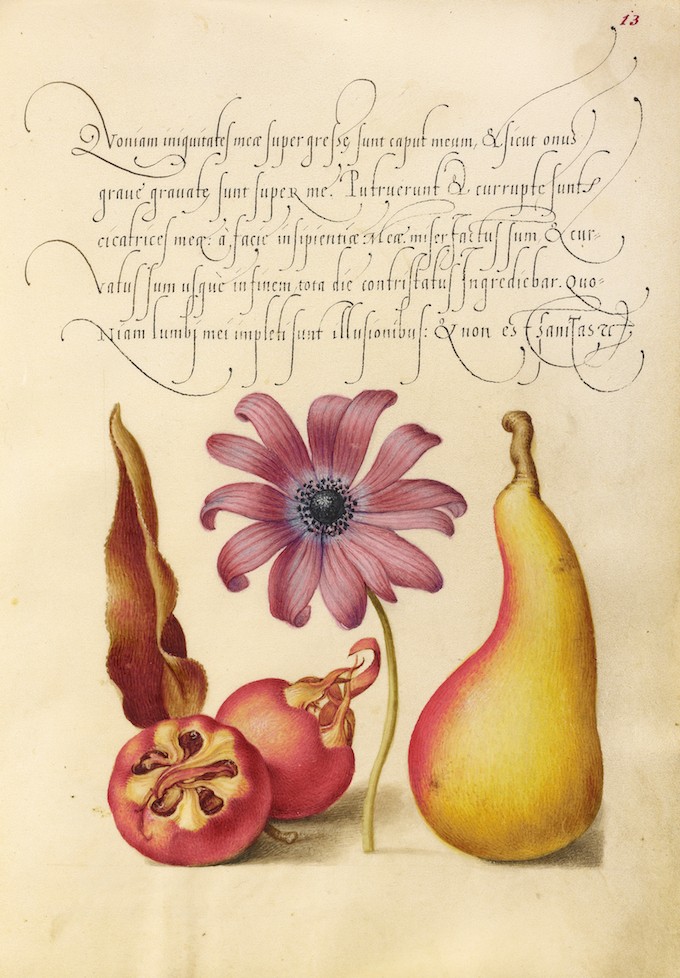 13
Quoniam iniquitates meæ super gressę sunt caput meum, & sicut onus
graue grauatę sunt super me. Putruerunt & currupte sunt
cicatrices meę: à facie insipientiæ meæ. miser factus sum, & cur-
vatus sum usquè in finem, tota die contristatus Ingrediebar. Quo-
Niam lumbi mei impleti sunt illusionibus: & non est sanitas &c